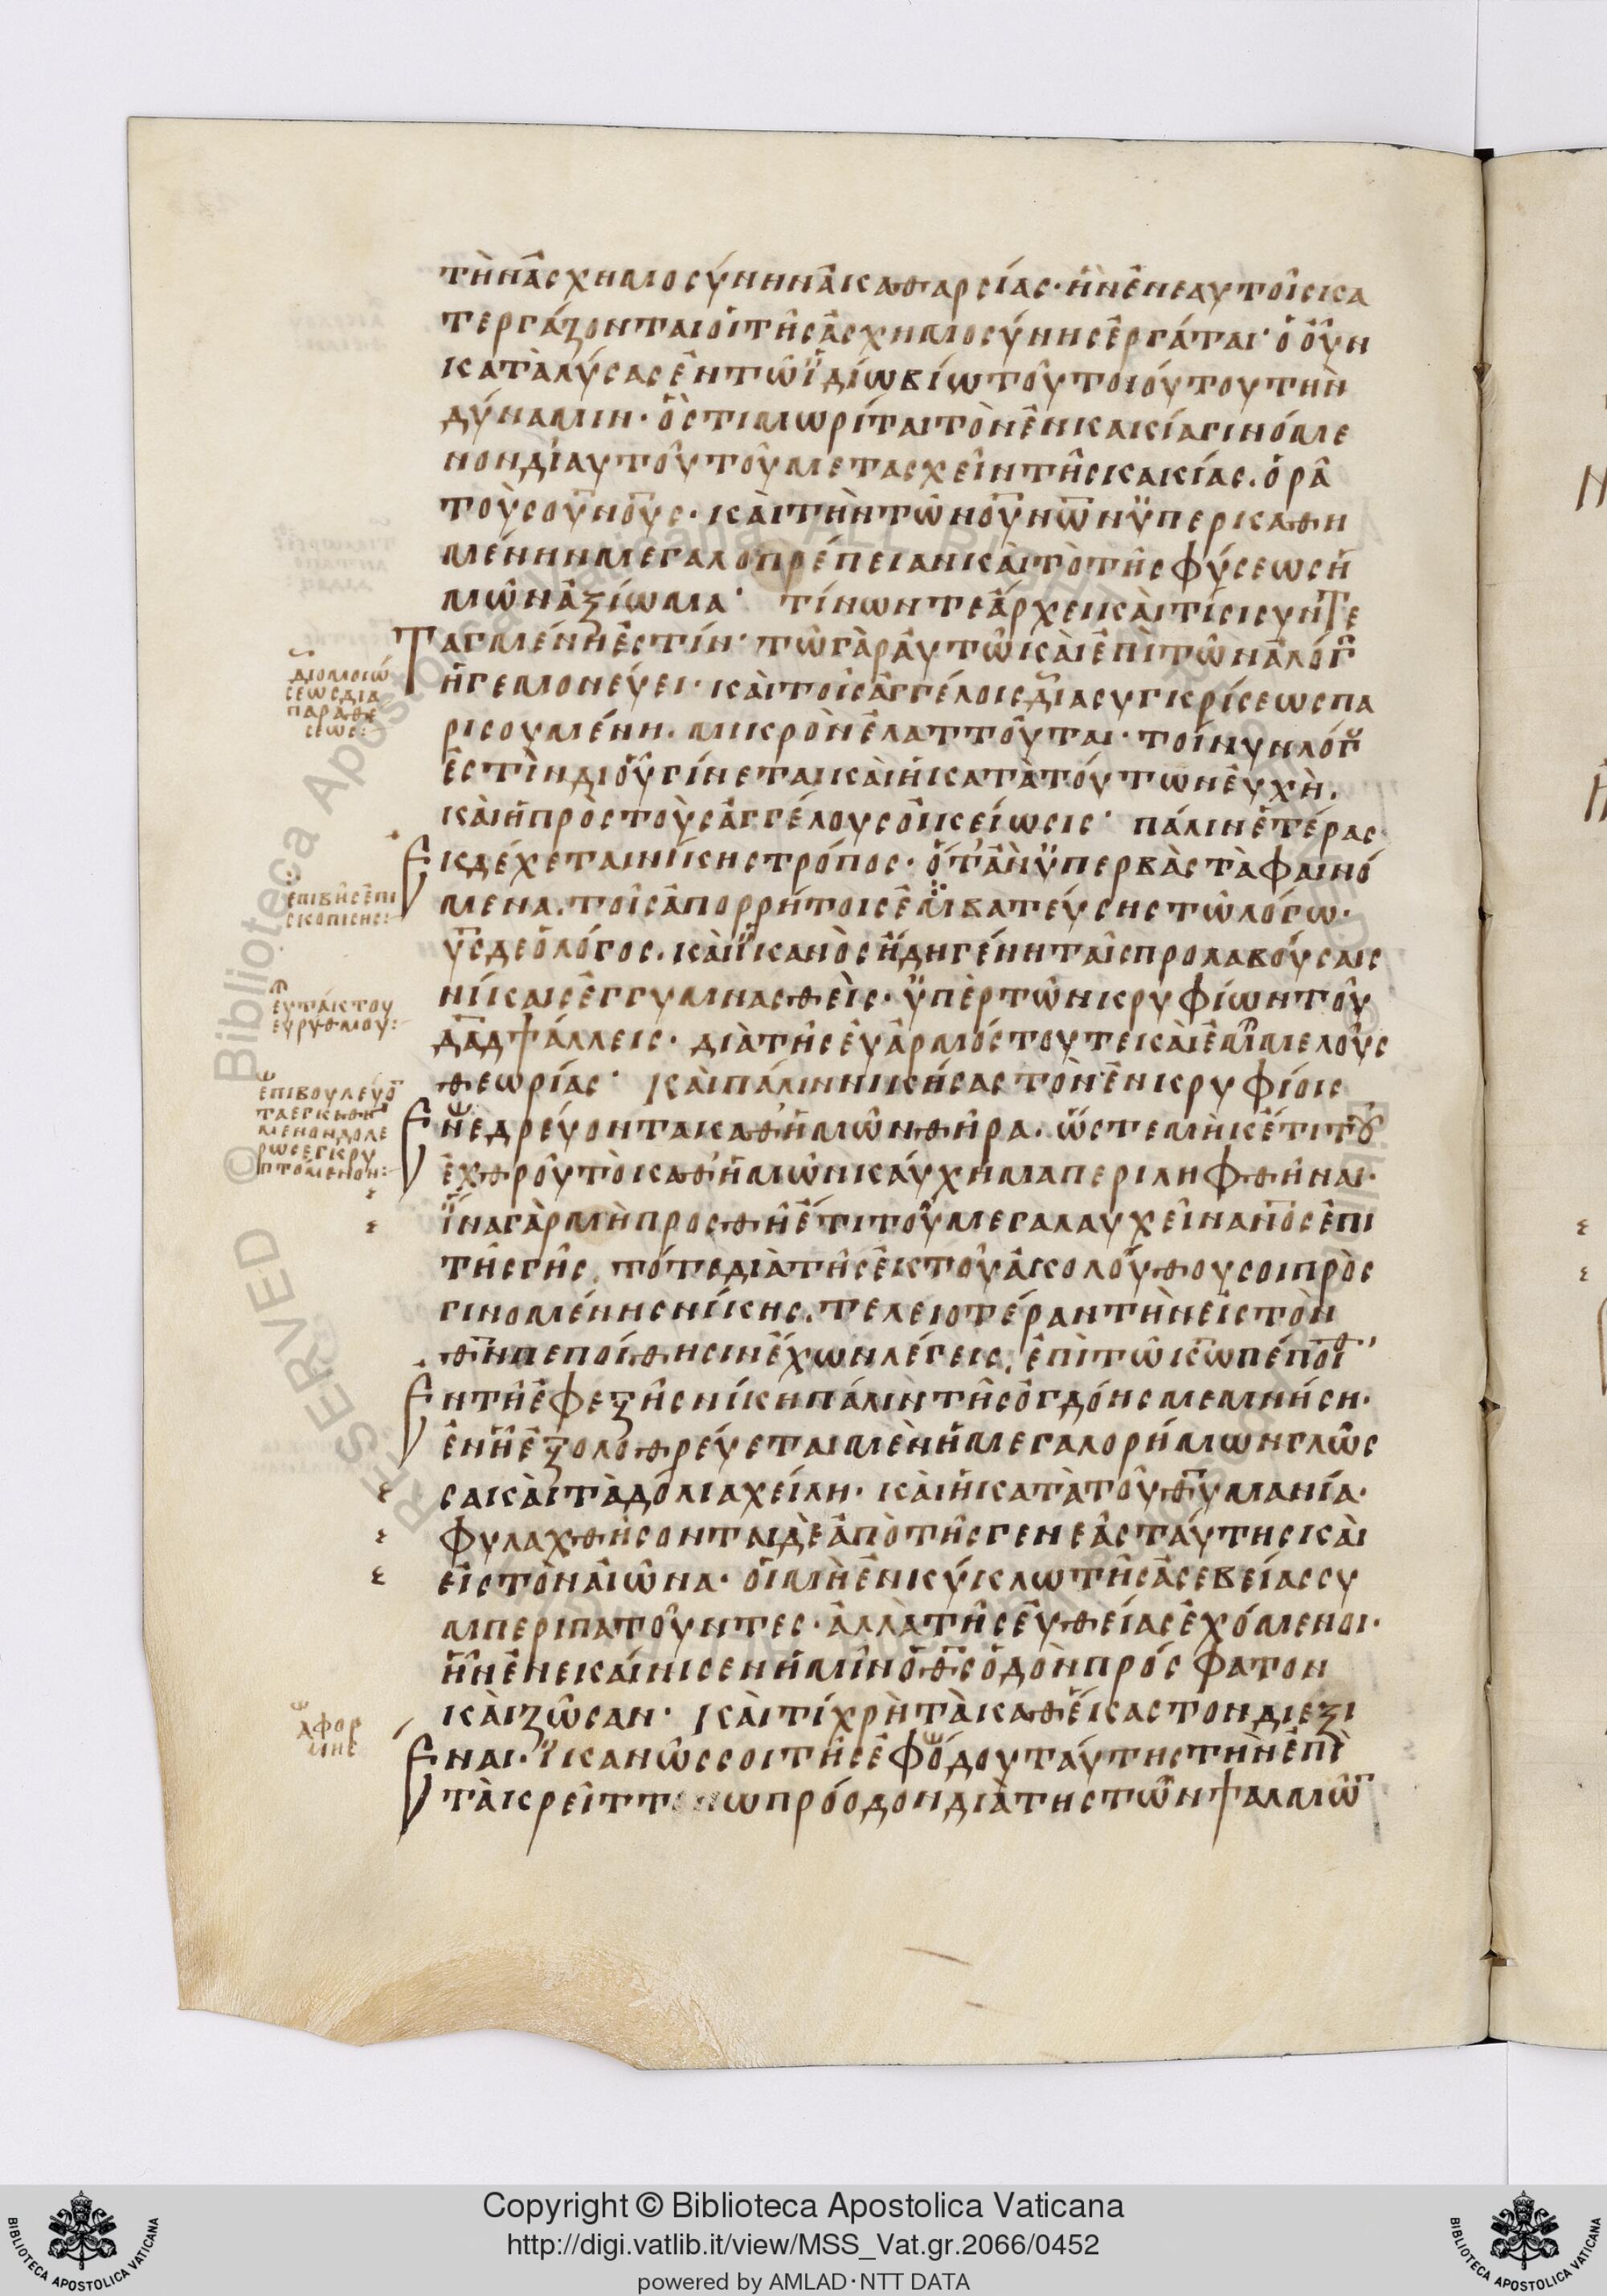 τὴν ἀσχημοσύνην ἀκαθαρσίας· ἣν ἐν ἑαυτοῖς κα
τεργάζονται οἱ τῆς ἀσχημοσύνης ἐργάται· ὁ οὖν
καταλύσας ἐν τῷ ἰδίω βίω τοῦ τοιούτου τὴν
δύναμιν· ὃς τιμωρίται τὸν ἐν κακία γινόμε
νον δι αυτοῦ τοῦ μετασχεῖν τῆς κακίας. ὁρᾶ
τοὺς οὐνους· καὶ τὴν τῶν οὐνων ὑπερκαθη
μένην μεγαλοπρέπειαν καὶ τὸ τῆς φύσεως ἡ
μῶν ἀξίωμα· τίνων τε ἄρχει καὶ τίσι συντε
Ταγμένη ἐστίν· τῶ γὰρ αὐτῶ καὶ ἐπὶ τῶν ἀλόγ
ἡγεμονεύει· καὶ τοῖς ἀγγέλοις διασυγκρίσεως πα
ρισουμένη. μικρὸν ἐλαττοῦται· τοίνυν λόγ
ἐστὶν δι οὗ γίνεται καὶ ἡ κατὰ τούτων εὐχὴ.
καὶ ἡ πρὸς τοὺς ἀγγέλους οἰκείωσις· πάλιν ἑτέρας
Εκδέχεται νίκης τρόπος· ὅτ' ἂν ὑπερβὰς τὰ φαινό
μενα. τοῖς ἀπορρήτοις ἐμβατεύσης τῶ λόγω·
υς δε ὁ λόγος. καὶ ἱκανὸς ἤδη γένη ταῖς προλαβούσαις
νίκαις ἐγγυμνασθεὶς· ὑπὲρ τῶν κρυφίων τοῦ
δαδ ψάλλεις· διὰ τῆς εὐαρμόστου τε καὶ ἐμμελοῦς
θεωρίας· καὶ πάλιν νικήσας τὸν ἐν κρυφίοις
Ενεδρεύοντα καθ' ἡμῶν θῆρα. ὥστε μὴκέτι τοῦ
ἐχθροῦ τὸ καθ' ἡμῶν καύχημα περιληφθῆναι·
ἵνα γὰρ μὴ προσθῆ ἔτι τοῦ μεγαλαυχεῖν ανος ἐπι
τῆς γῆς. τότε διὰ τῆς ἐκ τοῦ ἀκολούθου σοι προς
γινομένης νίκης. τελειοτέραν τὴν εἰς τὸν
θν πεποίθησιν ἔχων λέγεις. ἐπὶ τῶ κω πέποιθ
Εν τῆ ἐφεξῆς νίκη πάλιν τῆς ὀγδόης μεμνήση·
ἐν ἧ ἐξολοθρεύεται μὲν ἡ μεγαλορήμων γλῶς
σα καὶ τὰ δόλια χείλη· καὶ ἡ κατὰ τοῦ θυ μανία·
φυλαχθήσονται δὲ ἀπὸ τῆς γενεᾶς ταύτης καὶ
εἰς τὸν αἰῶνα· οἱ μὴ ἐν κύκλω τῆς ἀσεβείας συ
μπεριπατοῦντες· ἀλλὰ τῆς εὐθείας ἐχόμενοι·
ἣν ἐνεκαίνισεν ἡμῖν ὁ θς ὁδὸν πρόσφατον
καὶ ζῶσαν· καὶ τί χρὴ τὰ καθ' ἕκαστον διεξι
Εναι· ἱκανῶς σοι τῆς ἐφόδου ταύτης τὴν ἐπὶ
τὰ κρεῖττ ω πρόοδον διὰ τῆς τῶν ψαλμῶ
διομοιώ
σεως δια
παραθε
σεως:
ἐπιβῆς ἐπι
σκοπισης:
εὐτάκτου
εὐρύθμου:
ἐπιβουλεύο
τα εγκαθη
μενον δολε
ρως εγκρυ
πτόμενον:
αφορ
μης
Copyright © Biblioteca Apostolica Vaticana
http://digi.vatlib.it/view/MSS_Vat.gr.2066/0452
powered by AMLAD·NTT DATA
BIBLIOTECA APOSTOLICA VATICANA
BIBLIOTECA APOSTOLICA VATICANA